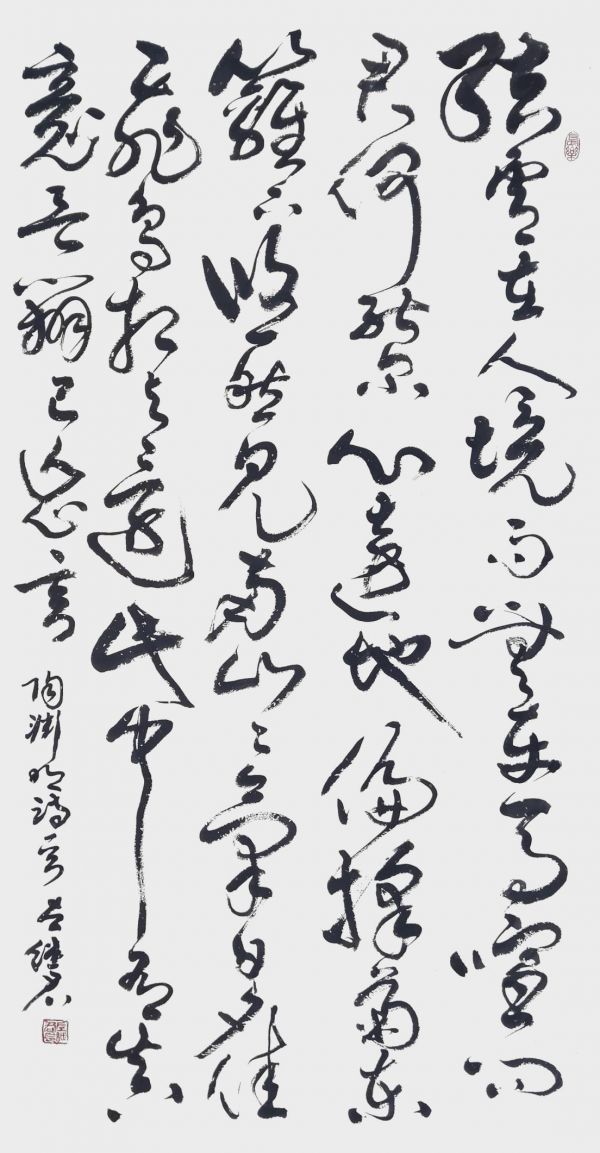 結廬在人境而無車馬喧問
君何能爾心遠地偏採菊東
籬下悠然見南山〻氣日夕佳
飛鳥相與還此中有真
意欲辨已忘言
陶淵明詩